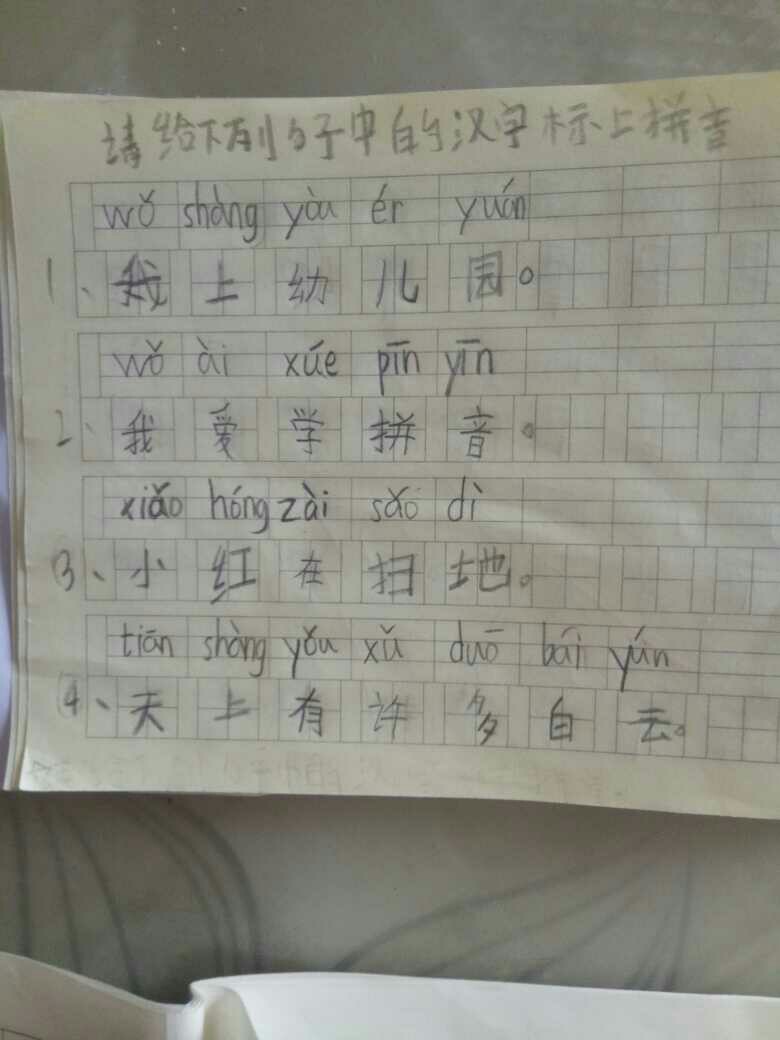 请给下列句子中的汉字标上拼音
wǒ shàng yòu ér yuán
1、我上幼儿园。
wǒ ài xúe pīn yīn
2、我爱学拼音。
xiǎo hóng zài sǎo dì
3、小红在扫地。
tiān shàng yǒu xǔ duō bái yún
4、天上有许多白云。